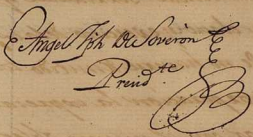 Angel Jph De Soverón
Presid.te